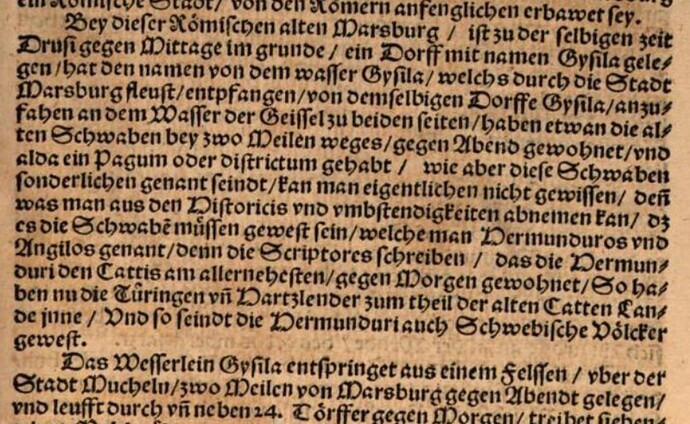 ein Römische Stadt / von den Römern anfenglichen erbawet sey.
Bey dieser Römischen alten Marsburg / ist zu der selbigen zeit
Drusi gegen Mittage im grunde / ein Dorff mit namen Gysila gele⸗
gen / hat den namen von dem wasser Gysila / welchs durch die Stadt
Marsburg fleust / entpfangen / von demselbigen Dorffe Gysila / anzu⸗
fahen an dem Wasser der Geissel zu beiden seiten / haben etwan die al⸗
ten Schwaben bey zwo Meilen weges / gegen Abend gewohnet / vnd
alda ein Pagum oder districtum gehabt / wie aber diese Schwaben
sonderlichen genant seindt / kan man eigentlichen nicht gewissen / deñ
was man aus den Historicis vnd vmbstendigkeiten abnemen kan / dz
es die Schwabẽ müssen gewest sein / welche man Hermunduros vnd
Angilos genant / denn die Scriptores schreiben / das die Hermun⸗
duri den Cattis am allernehesten / gegen Morgen gewohnet / So ha⸗
ben nu die Türingen vñ Hartzlender zum theil der alten Catten Lan⸗
de jnne / Vnd so seindt die Hermunduri auch Schwebische Völcker
gewest.
Das Wesserlein Gysila entspringet aus einem Felssen / vber der
Stadt Mucheln / zwo Meilen von Marsburg gegen Abendt gelegen /
vnd leufft durch vñ neben 24. Törffer gegen Morgen / treibet sieben⸗